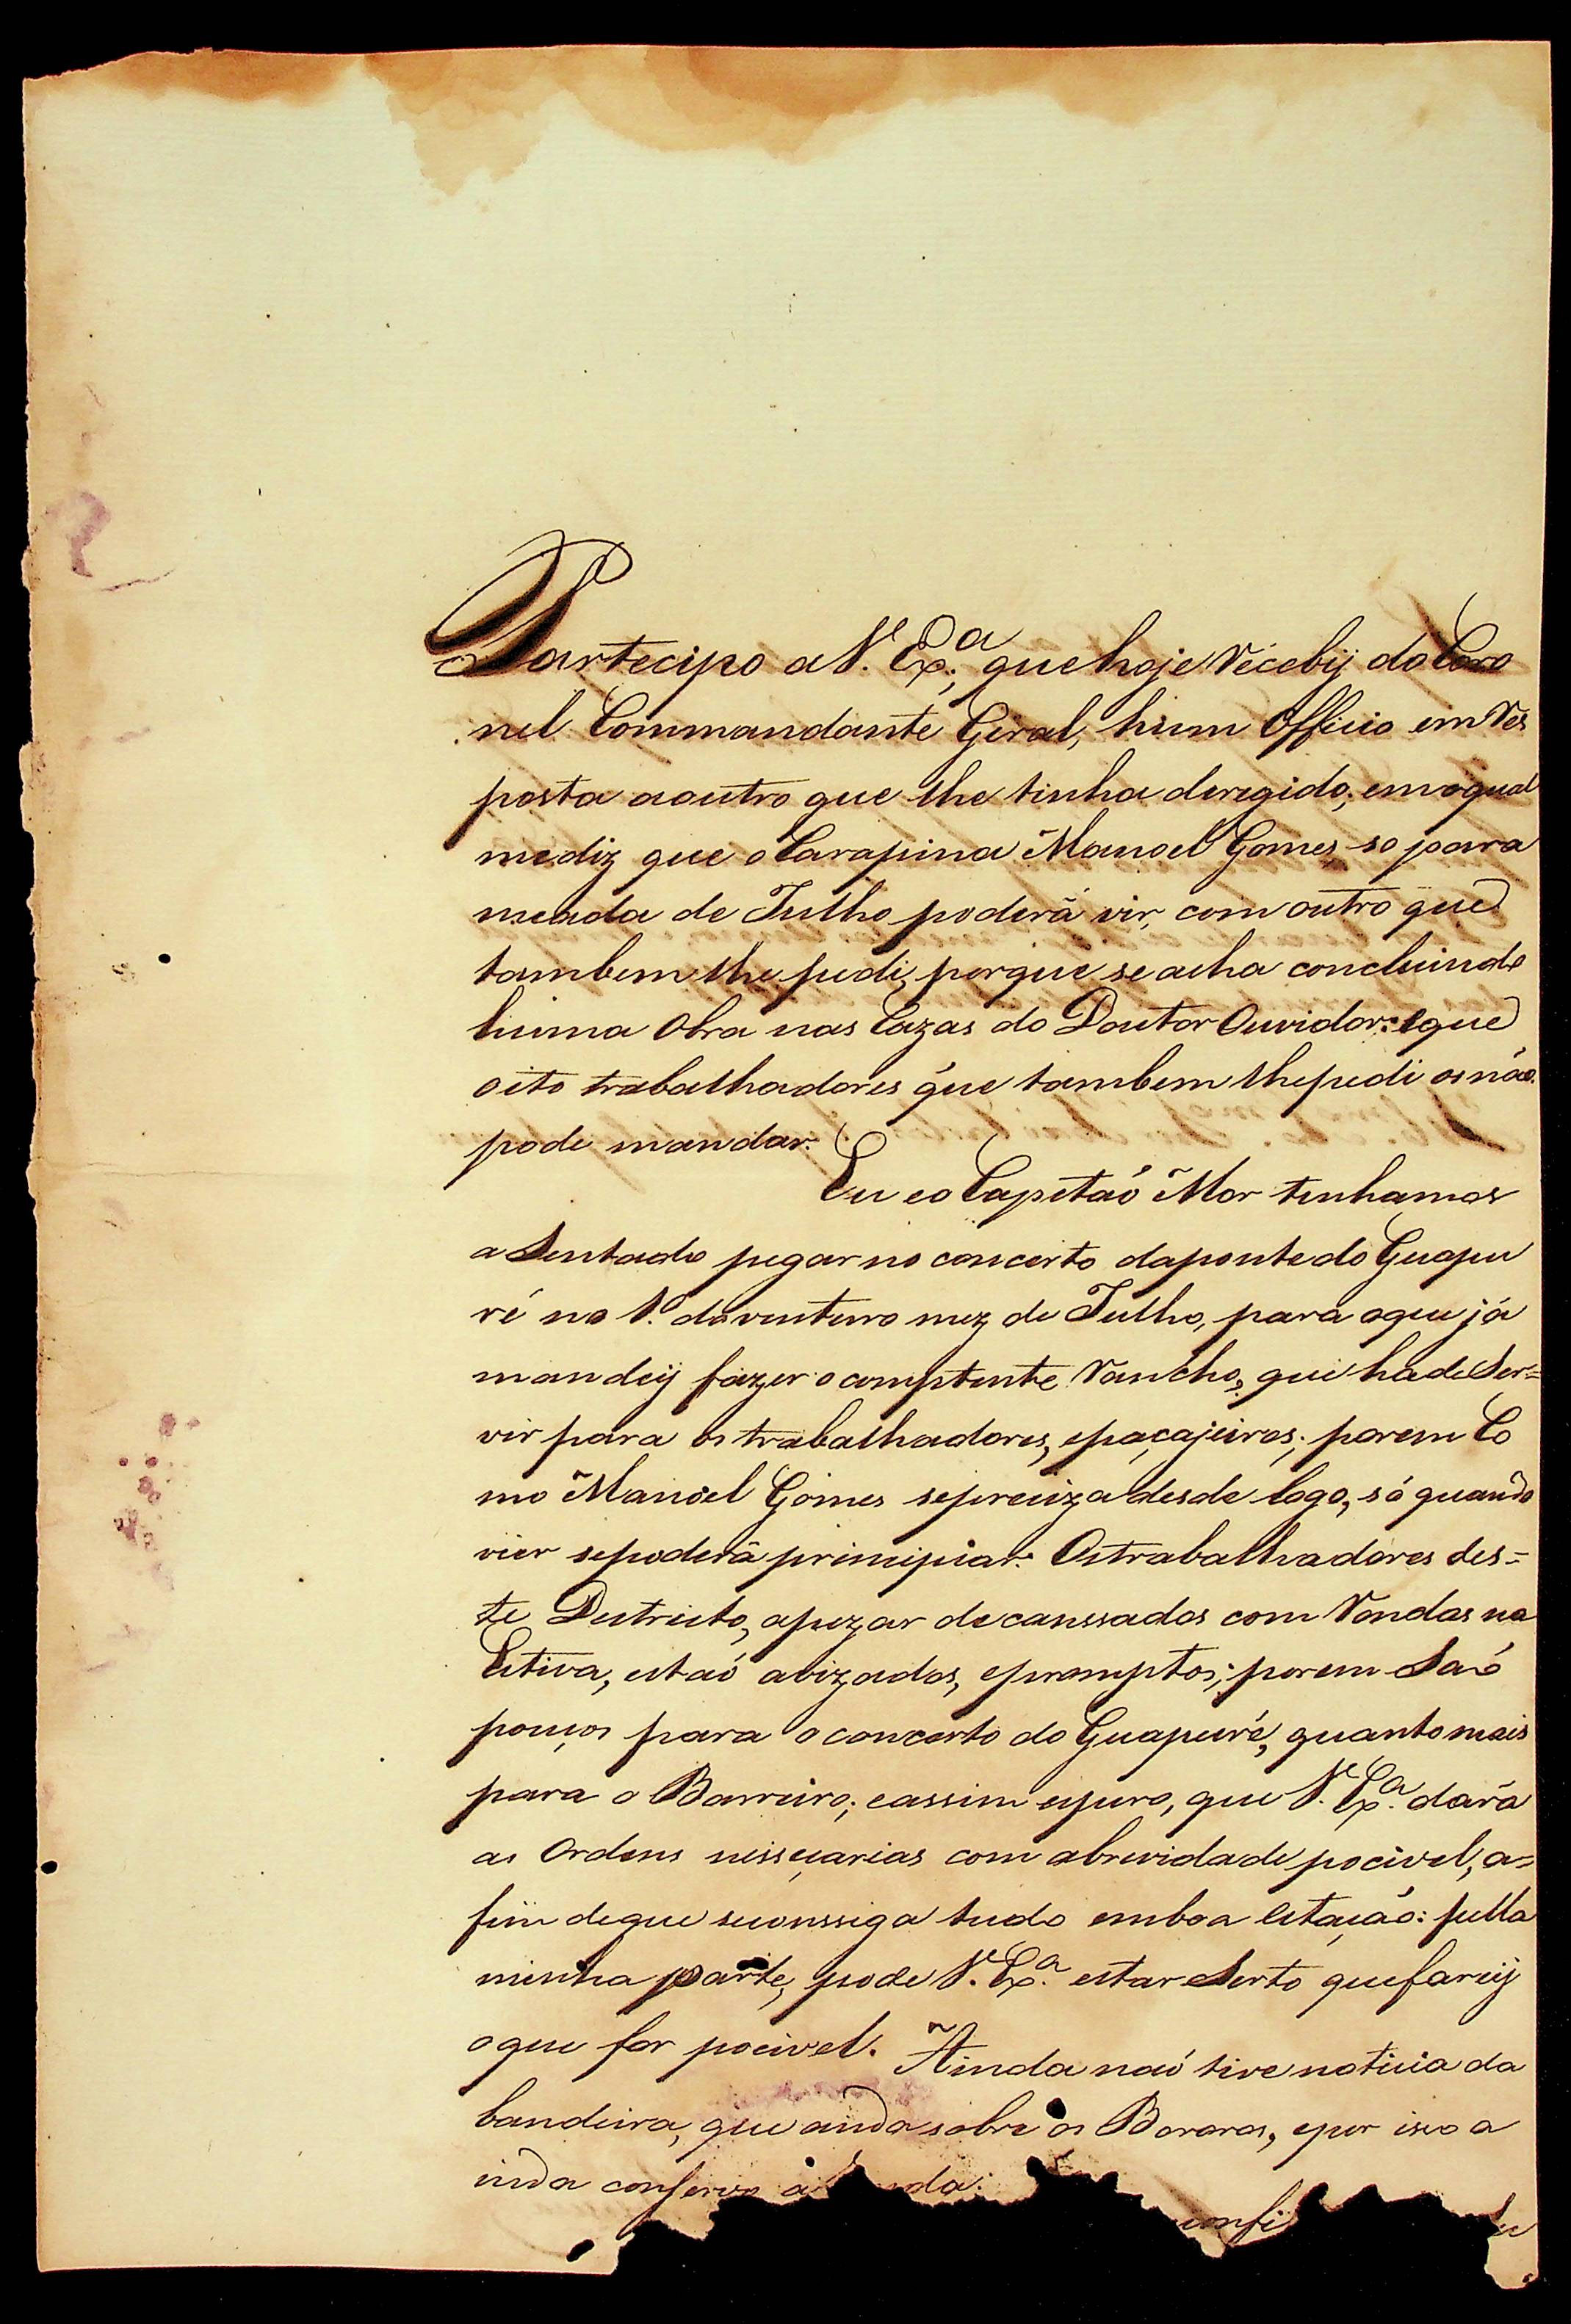 Partecipo a V. Exª; que hoje Recebij do Coro
nel Commandante Geral, hum Officio em Res
posta aoutro que lhe tinha deregido, em oqual
mediz que o Carapina Manoel Gomes so para
meada de Julho poderá vir, com outro que
tambem lhe pedi, porque se acha concluindo
huma Obra nas Cazas do Doutor Ouvidor: eque
oito trabalhadores que tambem lhepedi os náo
pode mandar.
Eu eo Capitaó Mor tinhamos
a Sentado pegar no concerto daponte do Guapu
ré no 1º doventuro mez de Julho, para oque já
mandeij fazer o comptente Rancho, que hade Ser=
vir para os trabalhadores, epaçajeiros; porem Co
mo Manoel Gomes seprecizadesde logo, só quando
vier sepoderá principiar. Ostrabalhadores des=
te Destricto, apezar decanssados com Rondas na
Estiva, estaó avizados, epromptos; porem Saó
pouços para o concerto do Guapuré, quanto mais
para o Barreiro; eassim espero, que V. Exª. dará
as Ordens nisseçarias com abrevidade pocivel, a=
fim deque seconssiga tudo emboa Estaçáo: pella
minha parte, pode V. Exª. estar Serto quefareij
oque for pocivel. Ainda naó tive noticia da
bandeira, que anda sobre os Bororos, epor isso a
inda conservo a nda:
confi